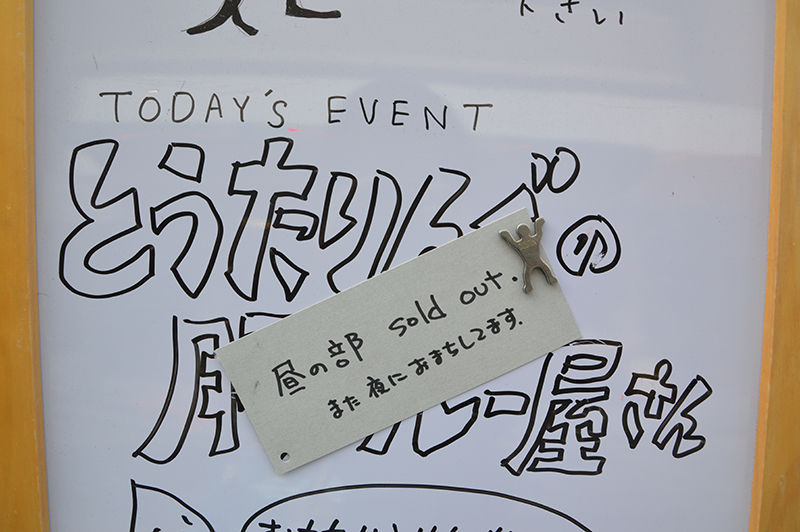 下さい
TODAY'S EVENT
とうたりんぐの
屋さん
昼の部 sold out.
また夜におまちしてます.